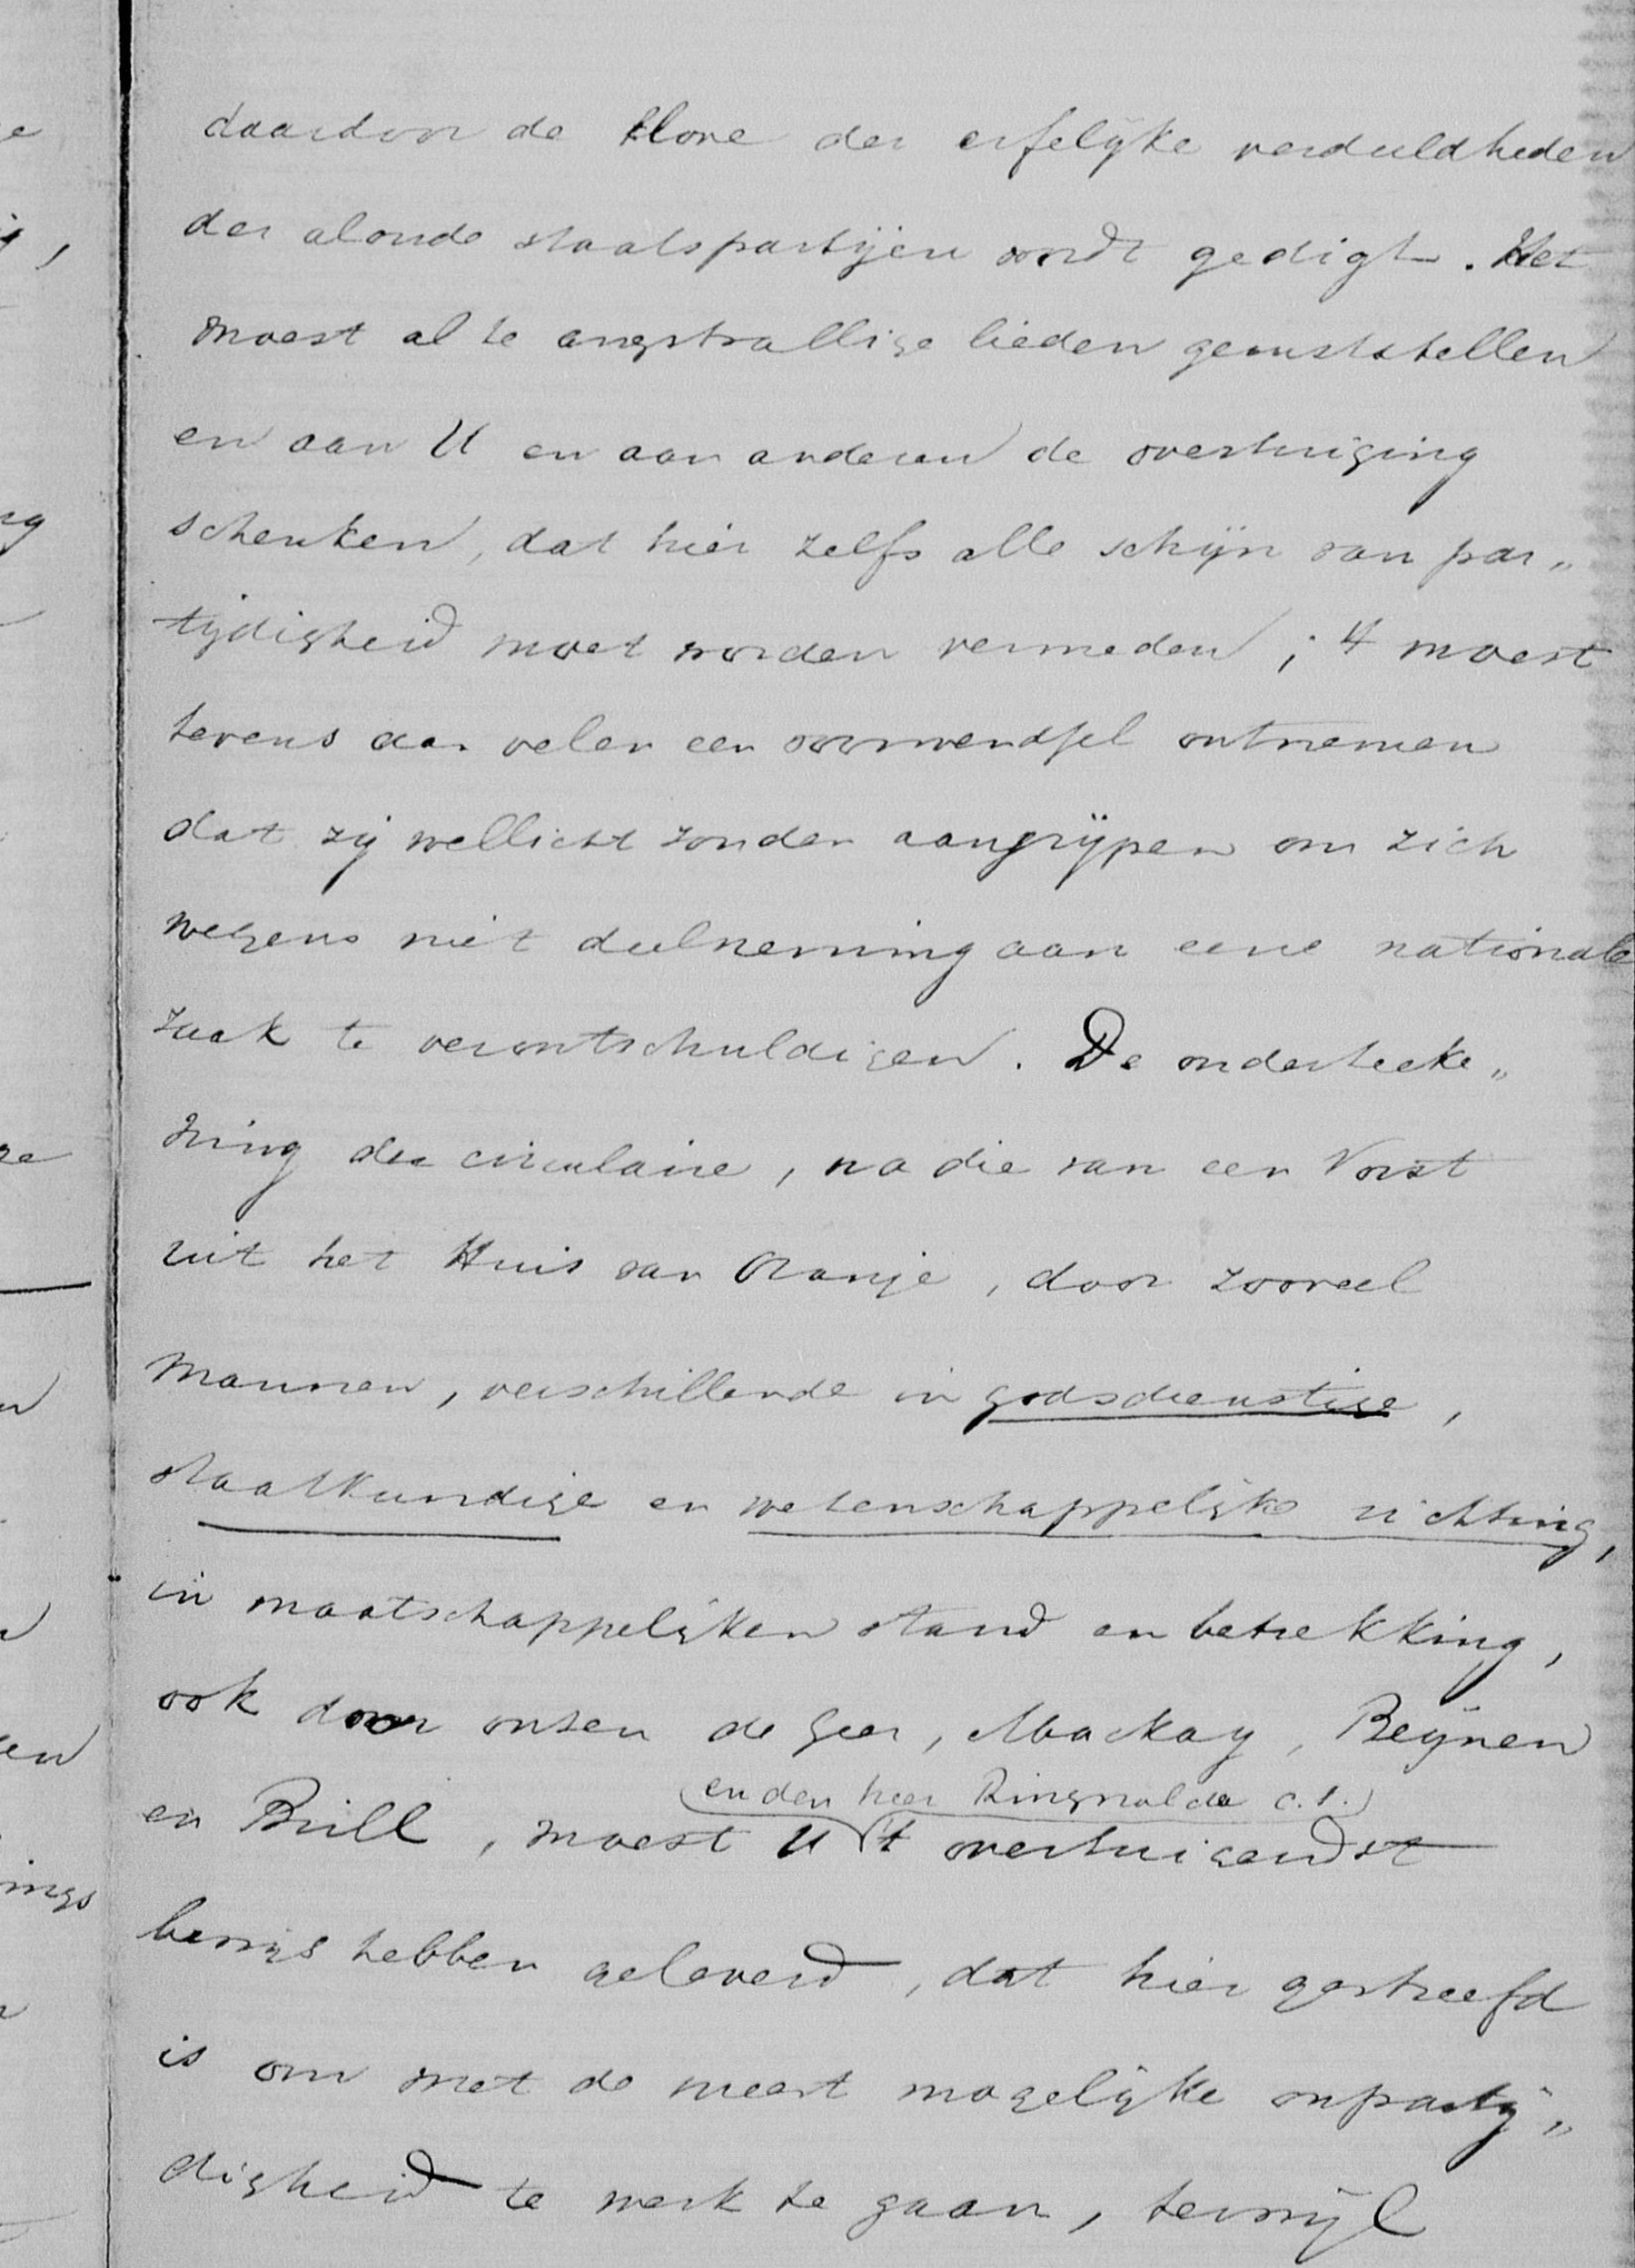 daardoor de klove der erfelijke verdeeldheden
der aloude staatspartijen wordt gedigt. Het
moest al te angstvallige lieden geruststellen
en aan U en aan anderen de overtuiging
schenken, dat hier zelfs alle schijn van par„
tijdigheid moet worden vermeden; 't moest
tevens aan velen een voorwendsel ontnemen
dat zij wellicht zouden aangrijpen om zich
wegens niet deelneming aan eene nationale
zaak te verontschuldigen. De onderteeke„
ning der circulaire, na die van een Vorst
uit het Huis van Oranje, door zooveel
mannen, verschillende in godsdienstige,
staatkundige en wetenschappelijke richting,
in maatschappelijken stand en betrekking,
ook door onzen de Geer, Mackay, Beijnen
en den heer Ringnalda c.s.
en Brill, moest U 't overtuigendst
bewijs hebben geleverd, dat hier gestreefd
is om met de meest mogelijke onpartij„
digheid te werk te gaan, terwijl